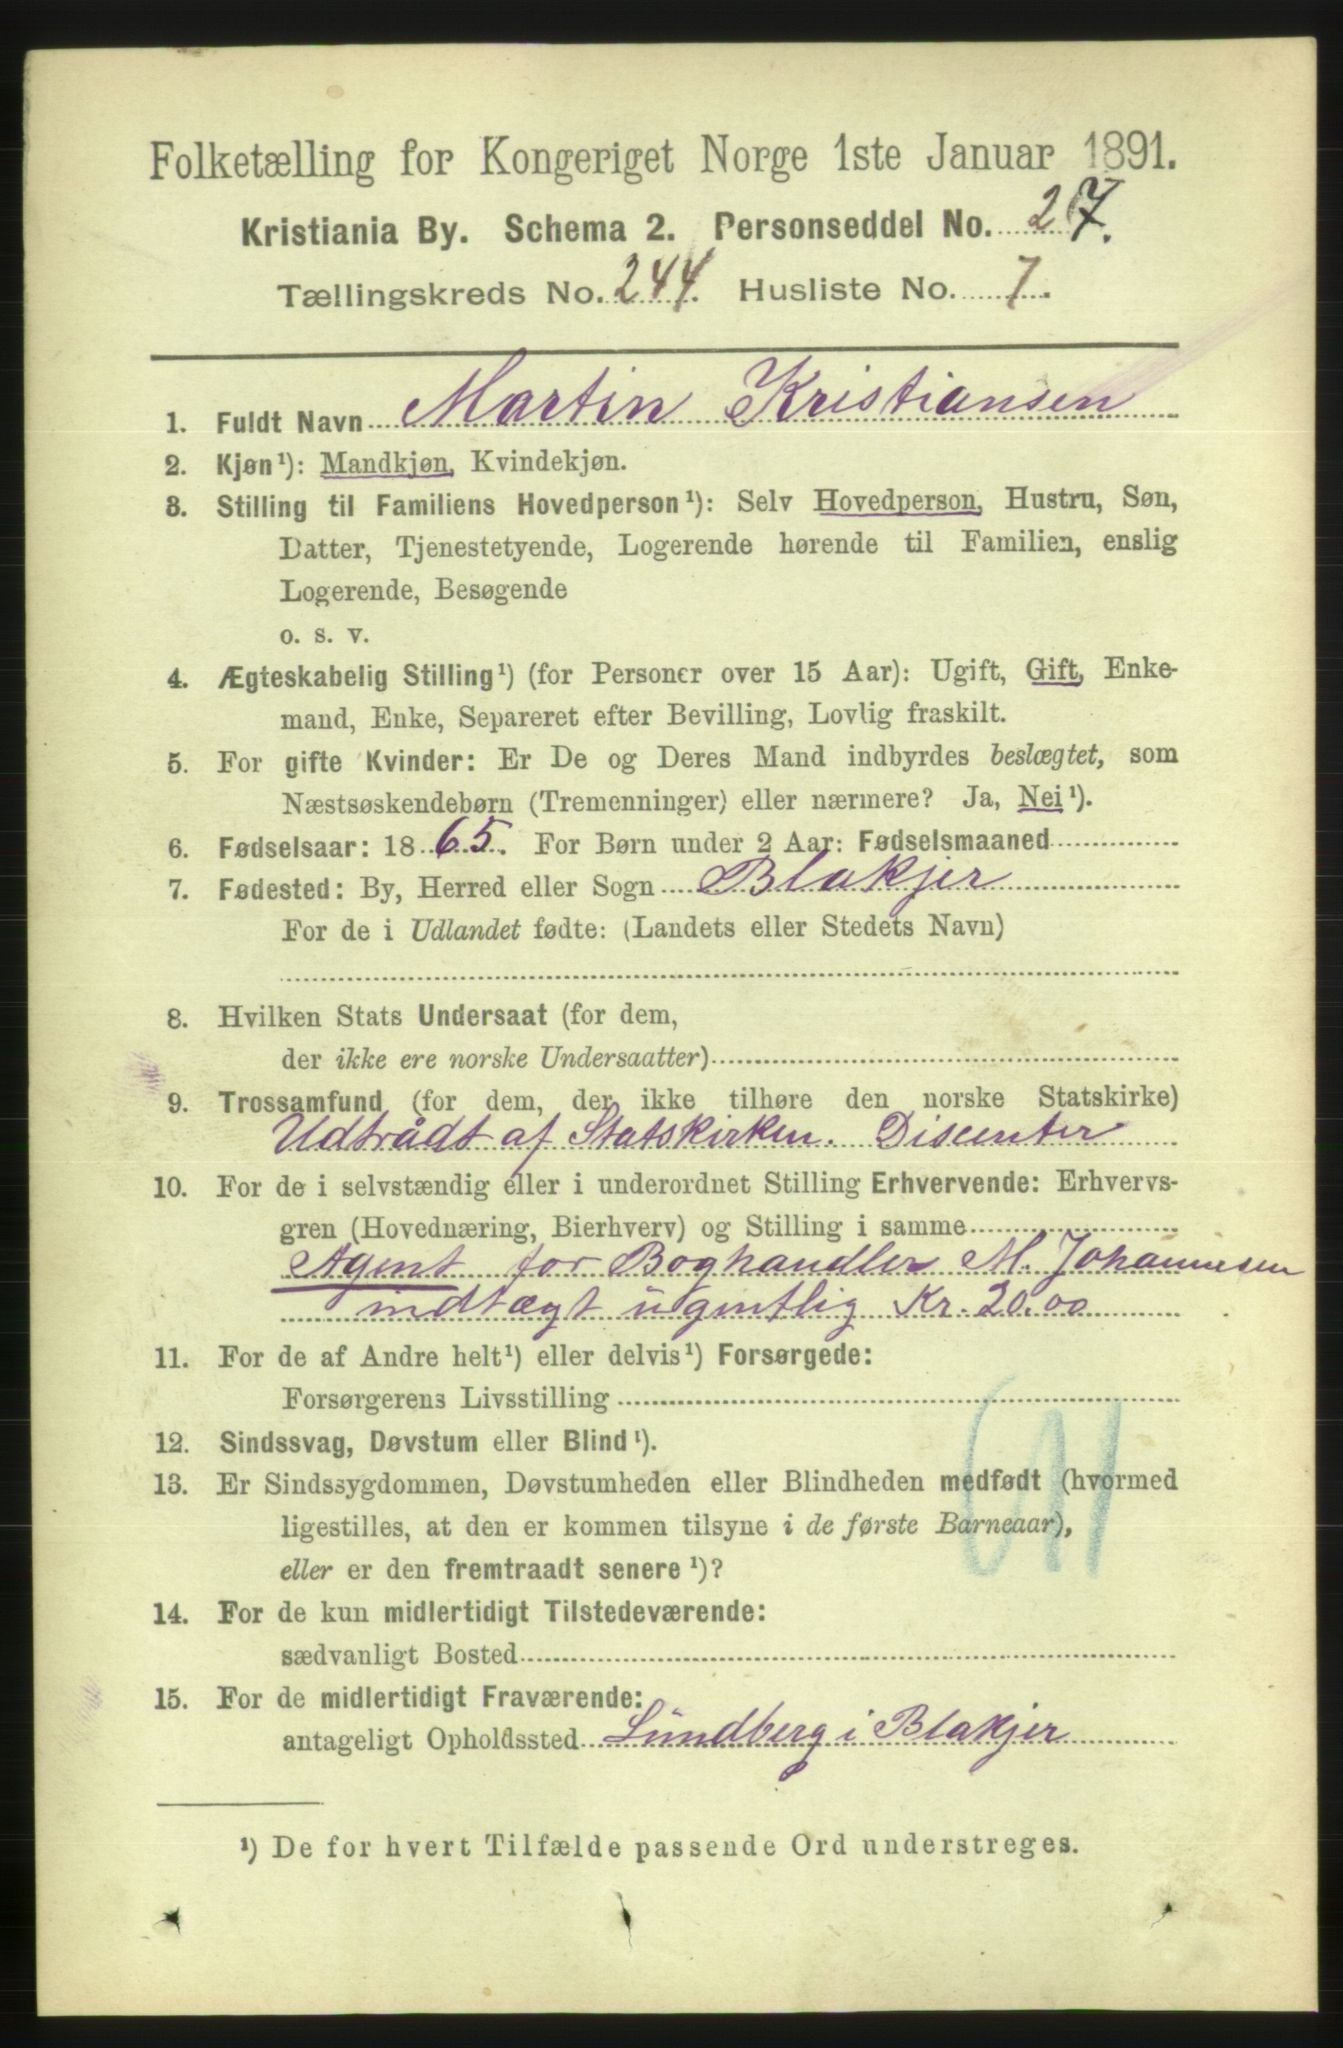 Folketælling for Kongeriget Norge 1ste Januar 1891.
Kristiania By. Schema 2. Personseddel No. 27.
Tællingskreds No. 244. Husliste No. 7.
1. Fuldt Navn Martin Kristiansen
2. Kjøn¹): Mandkjøn, Kvindekjøn.
3. Stilling til Familiens Hovedperson¹): Selv Hovedperson, Hustru, Søn,
Datter, Tjenestetyende, Logerende hørende til Familien, enslig
Logerende, Besøgende
o. s. v.
4. Ægteskabelig Stilling¹) (for Personer over 15 Aar): Ugift, Gift, Enke-
mand, Enke, Separeret efter Bevilling, Lovlig fraskilt.
5. For gifte Kvinder: Er De og Deres Mand indbyrdes beslægtet, som
Næstsøskendebørn (Tremenninger) eller nærmere? Ja, Nei¹).
6. Fødselsaar: 1865. For Børn under 2 Aar: Fødselsmaaned
7. Fødested: By, Herred eller Sogn Blakjer
For de i Udlandet fødte: (Landets eller Stedets Navn)
8. Hvilken Stats Undersaat (for dem,
der ikke ere norske Undersaatter)
9. Trossamfund (for dem, der ikke tilhøre den norske Statskirke)
Udtrådt af Statskirken. Discenter
10. For de i selvstændig eller i underordnet Stilling Erhvervende: Erhvervs-
gren (Hovednæring, Bierhverv) og Stilling i samme
Agent for Boghandler M. Johannesen
indtægt ugentlig Kr. 20.00
11. For de af Andre helt¹) eller delvis¹) Forsørgede:
Forsørgerens Livsstilling
12. Sindssvag, Døvstum eller Blind¹).
13. Er Sindssygdommen, Døvstumheden eller Blindheden medfødt (hvormed
ligestilles, at den er kommen tilsyne i de første Barneaar),
eller er den fremtraadt senere¹)?
14. For de kun midlertidigt Tilstedeværende:
sædvanligt Bosted
15. For de midlertidigt Fraværende:
antageligt Opholdssted Lundberg i Blakjer
¹) De for hvert Tilfælde passende Ord understreges.